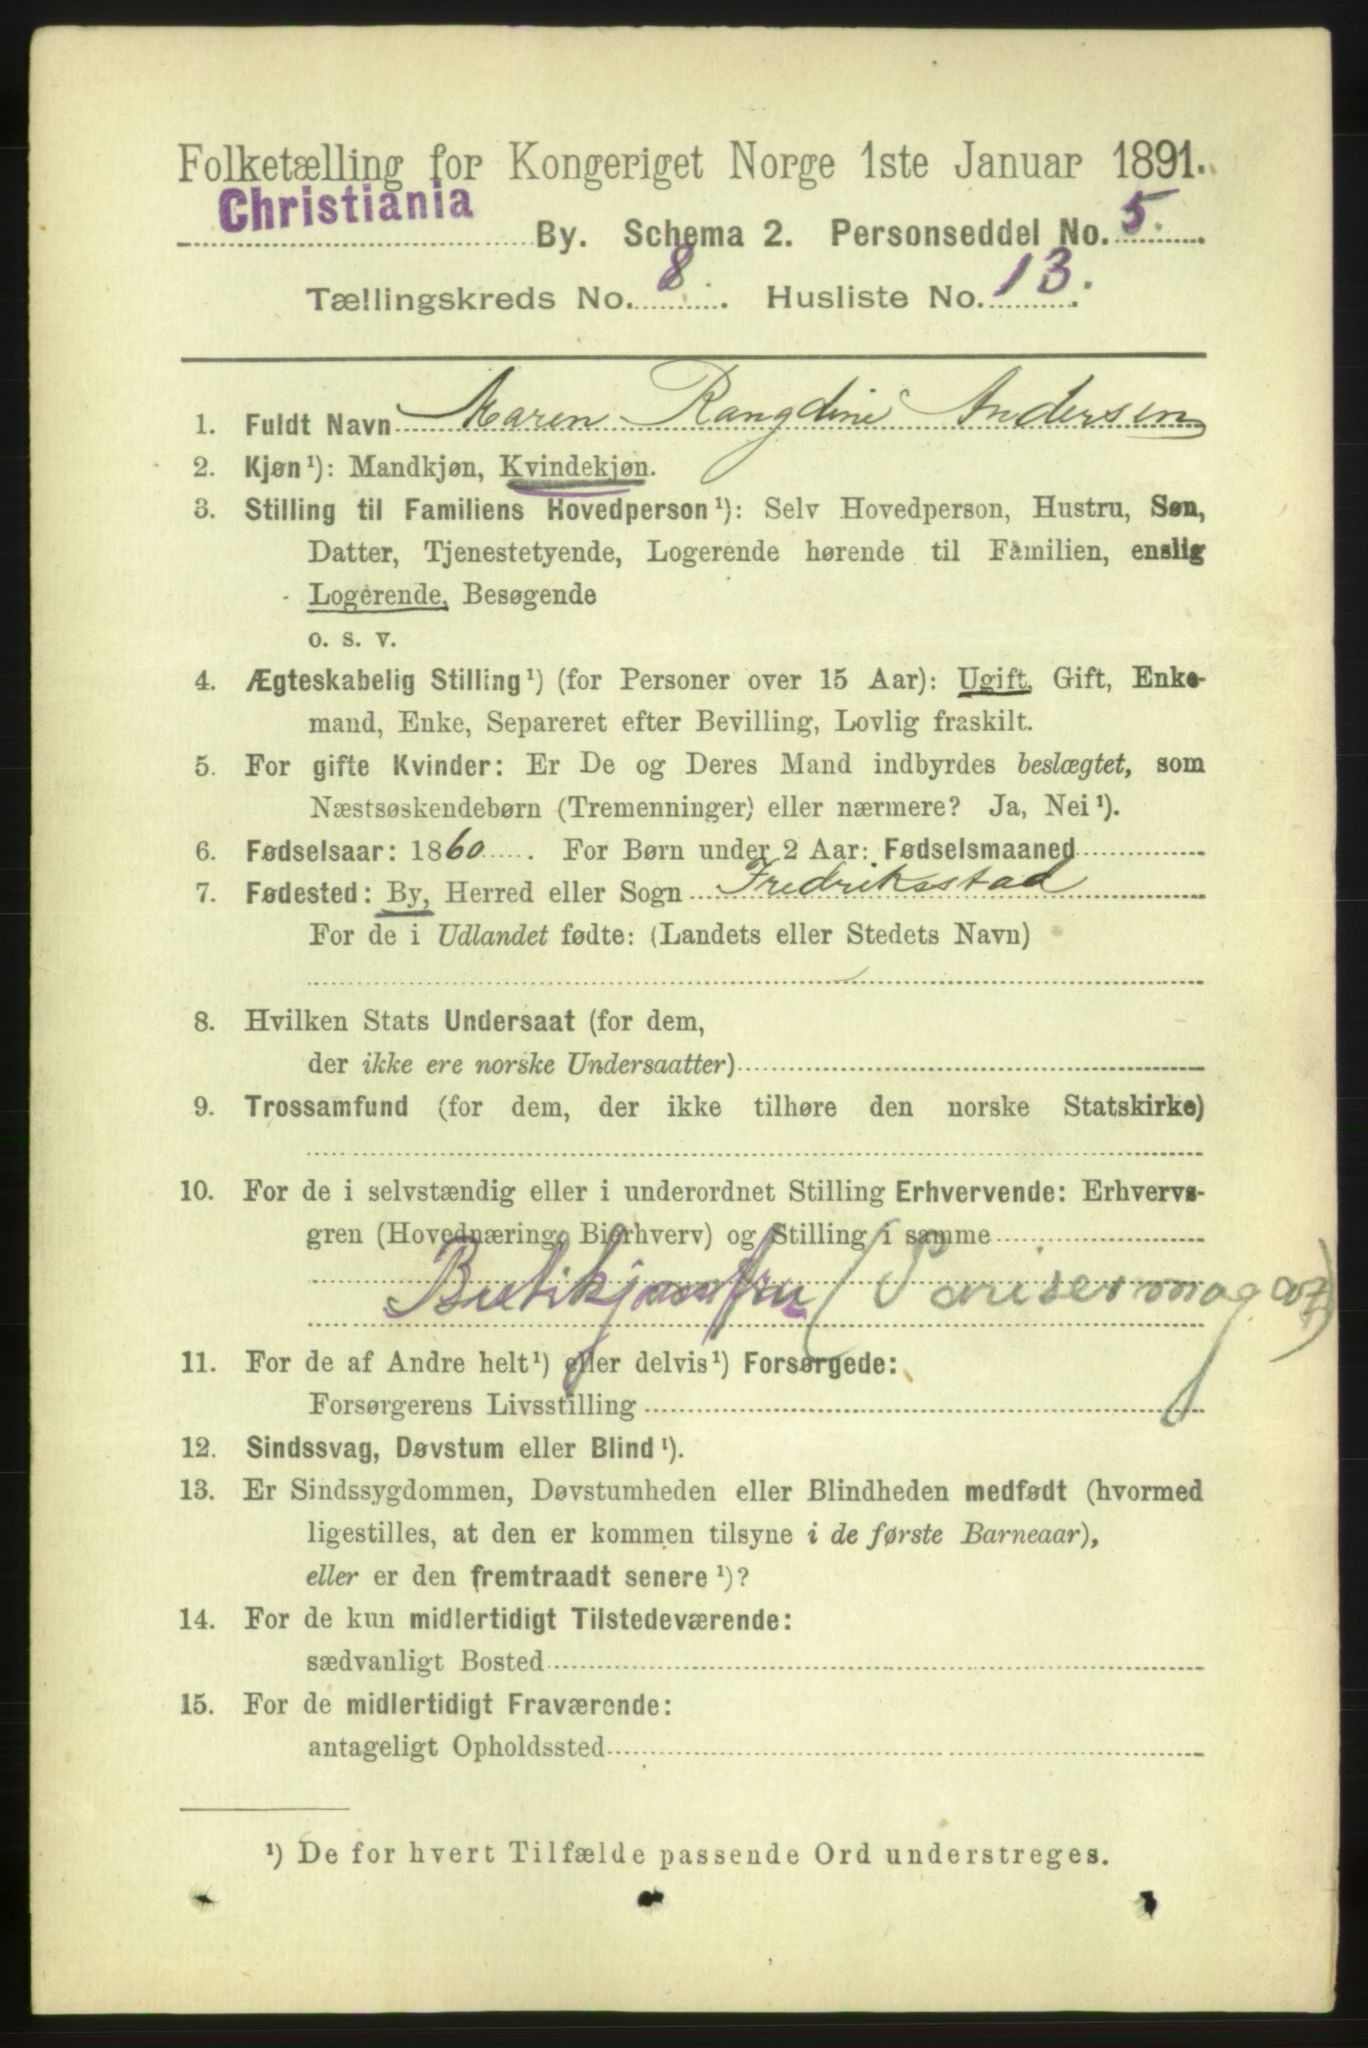 Folketælling for Kongeriget Norge 1ste Januar 1891.
Christiania By. Schema 2. Personseddel No. 5.
Tællingskreds No. 8. Husliste No. 13.
1. Fuldt Navn Maren Rangdine Andersen
2. Kjøn¹): Mandkjøn, Kvindekjøn.
3. Stilling til Familiens Hovedperson¹): Selv Hovedperson, Hustru, Søn,
Datter, Tjenestetyende, Logerende hørende til Familien, enslig
Logerende, Besøgende
o. s. v.
4. Ægteskabelig Stilling¹) (for Personer over 15 Aar): Ugift, Gift, Enke-
mand, Enke, Separeret efter Bevilling, Lovlig fraskilt.
5. For gifte Kvinder: Er De og Deres Mand indbyrdes beslægtet, som
Næstsøskendebørn (Tremenninger) eller nærmere? Ja, Nei¹).
6. Fødselsaar: 1860. For Børn under 2 Aar: Fødselsmaaned
7. Fødested: By, Herred eller Sogn Fredriksstad
For de i Udlandet fødte: (Landets eller Stedets Navn)
8. Hvilken Stats Undersaat (for dem,
der ikke ere norske Undersaatter)
9. Trossamfund (for dem, der ikke tilhøre den norske Statskirke)
10. For de i selvstændig eller i underordnet Stilling Erhvervende: Erhvervs-
gren (Hovednæring, Bierhverv) og Stilling i samme
Butikjomfru (Parisermagaz)
11. For de af Andre helt¹) eller delvis¹) Forsørgede:
Forsørgerens Livsstilling
12. Sindssvag, Døvstum eller Blind¹).
13. Er Sindssygdommen, Døvstumheden eller Blindheden medfødt (hvormed
ligestilles, at den er kommen tilsyne i de første Barneaar),
eller er den fremtraadt senere¹)?
14. For de kun midlertidigt Tilstedeværende:
sædvanligt Bosted
15. For de midlertidigt Fraværende:
antageligt Opholdssted
¹) De for hvert Tilfælde passende Ord understreges.